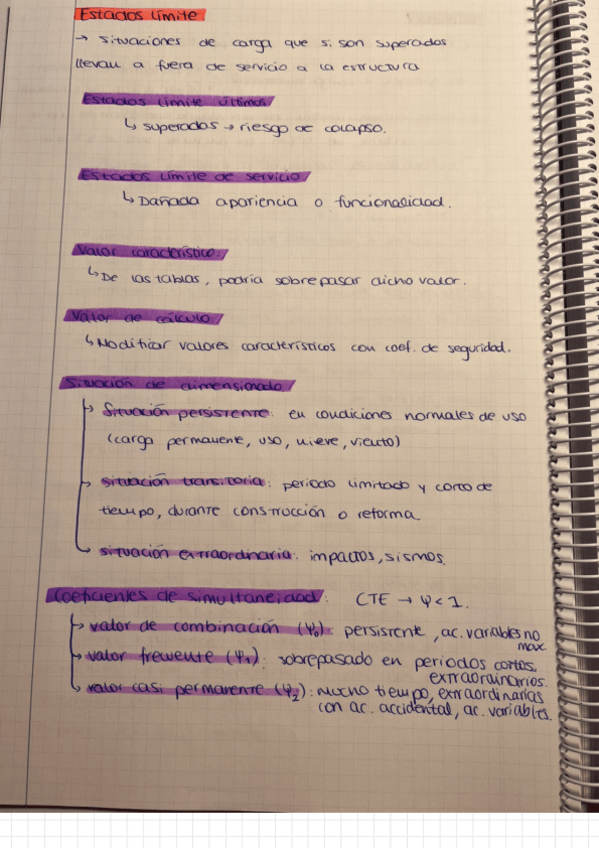 Estados límite
→ situaciones de carga que si son superados
llevan a fuera de servicio a la estructura
Estados límite últimos
↳ superados → riesgo de colapso.
Estados límite de servicio
↳ Dañada apariencia o funcionalidad.
Valor característico:
↳ De las tablas, podría sobrepasar dicho valor.
Valor de cálculo
↳ Modificar valores característicos con coef. de seguridad.
Situación de dimensionado
Situación persistente: en condiciones normales de uso
(carga permanente, uso, nieve, viento)
situación transitoria: periodo limitado y corto de
tiempo, durante construcción o reforma.
situación extraordinaria: impactos, sismos.
Coeficientes de simultaneidad: CTE → ψ < 1.
valor de combinación (ψ₀): persistente, ac. variables no
max.
valor frecuente (ψ₁): sobrepasado en periodos cortos.
extraordinarios.
valor casi permanente (ψ₂): mucho tiempo, extraordinarias
con ac. accidental, ac. variables.